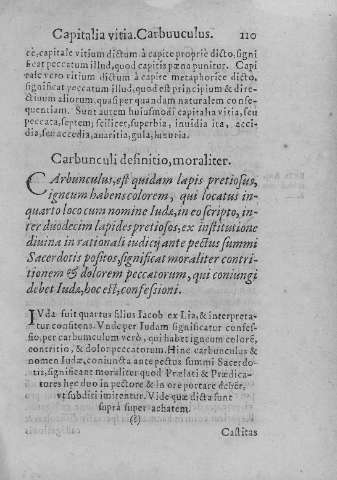 Capitalia vitia. Carbuuculus. 110
cè, capitale vitium dictum à capite propriè dicto, signi
ficat peccatum illud, quod capitis pæna punitur. Capi
tale vero vitium dictum à capite metaphorice dicto,
significat peccatum illud, quod est principium & dire-
ctium aliorum. quasi per quandam naturalem conse-
quentiam. Sunt autem huiusmodi capitalia vitia, seu
peccata, septem; scilicet, superbia, inuidia ira, acci-
dia, seu accedia, auaritia, gula, luxuria.
Carbunculi definitio, moraliter.
CArbunculus, est quidam lapis pretiosus,
igneum habens colorem, qui locatus in-
quarto loco cum nomine Iudæ, in eo scripto, in-
ter duodecim lapides pretiosos, ex institutione
diuina in rationali iudicij ante pectus summi
Sacerdotis positos, significat moraliter contri-
tionem & dolorem peccatorum, qui coniungi
debet Iudæ, hoc est, confessioni.
IVda fuit quartus filius Iacob ex Lia, & interpreta-
tur confitens. Vnde per Iudam significatur confes-
sio, per carbumculum verò, qui habet igneum colorē,
contritio, & dolor peccatorum. Hinc carbunculus &
nomen Iudæ, coniuncta ante pectus summi Sacerdo-
tis, significant moraliter quod Prælati & Prædica-
tores hęc duo in pectore & in ore portare debēt,
vt subditi imitentur. Vide quæ dicta sunt
suprà super achatem.
Castitas